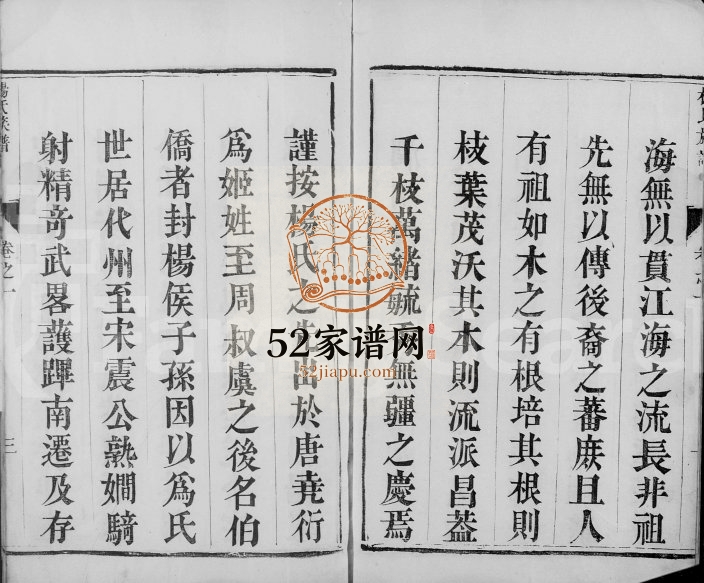 海無以貫江海之流長非祖
先無以傳後裔之蕃庶且人
有祖如木之有根培其根則
枝葉茂沃其本則流派昌葢
千枝萬緒 無疆之慶焉
謹按楊氏之 出於唐堯衍
爲姬姓至周叔虞之後名伯
僑者封楊侯子孫因以爲氏
世居代州至宋震公熟嫺騎
射精奇武畧護蹕南遷及存
楊氏族譜
卷之一
三
52家谱网
52jiapu.com